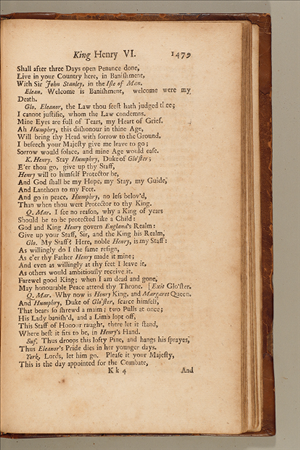 King Henry VI. 1479
Shall after three Days open Penance done,
Live in your Country here, in Banishment,
With Sir John Stanley, in the Isle of Man.
Elean. Welcome is Banishment, welcome were my
Death.
Glo. Eleanor, the Law thou seest hath judged thee;
I cannot justifie, whom the Law condemns.
Mine Eyes are full of Tears, my Heart of Grief.
Ah Humphry, this dishonour in thine Age,
Will bring thy Head with sorrow to the Ground.
I beseech your Majesty give me leave to go;
Sorrow would solace, and mine Age would ease.
K. Henry. Stay Humphry, Duke of Glo'ster;
E'er thou go, give up thy Staff,
Henry will to himself Protector be,
And God shall be my Hope, my Stay, my Guide,
And Lanthorn to my Feet.
And go in peace, Humphry, no less belov'd,
Than when thou wert Protector to thy King.
Q. Mar. I see no reason, why a King of Years
Should be to be protected like a Child:
God and King Henry govern England's Realm:
Give up your Staff, Sir, and the King his Realm.
Glo. My Staff? Here, noble Henry, is my Staff:
As willingly do I the same resign,
As e'er thy Father Henry made it mine;
And even as willingly at thy feet I leave it,
As others would ambitiously receive it.
Farewel good King; when I am dead and gone,
May honourable Peace attend thy Throne. [Exit Glo'ster.
Q. Mar. Why now is Henry King, and Margaret Queen.
And Humphry, Duke of Glo'ster, scarce himself,
That bears so shrewd a maim: two Pulls at once;
His Lady banish'd, and a Limb lopt off.
This Staff of Honour raught, there let it stand,
Where best it fits to be, in Henry's Hand.
Suf. Thus droops this lofty Pine, and hangs his sprayes,
Thus Eleanor's Pride dies in her younger days.
York. Lords, let him go. Please it your Majesty,
This is the day appointed for the Combate,
K k 4 And